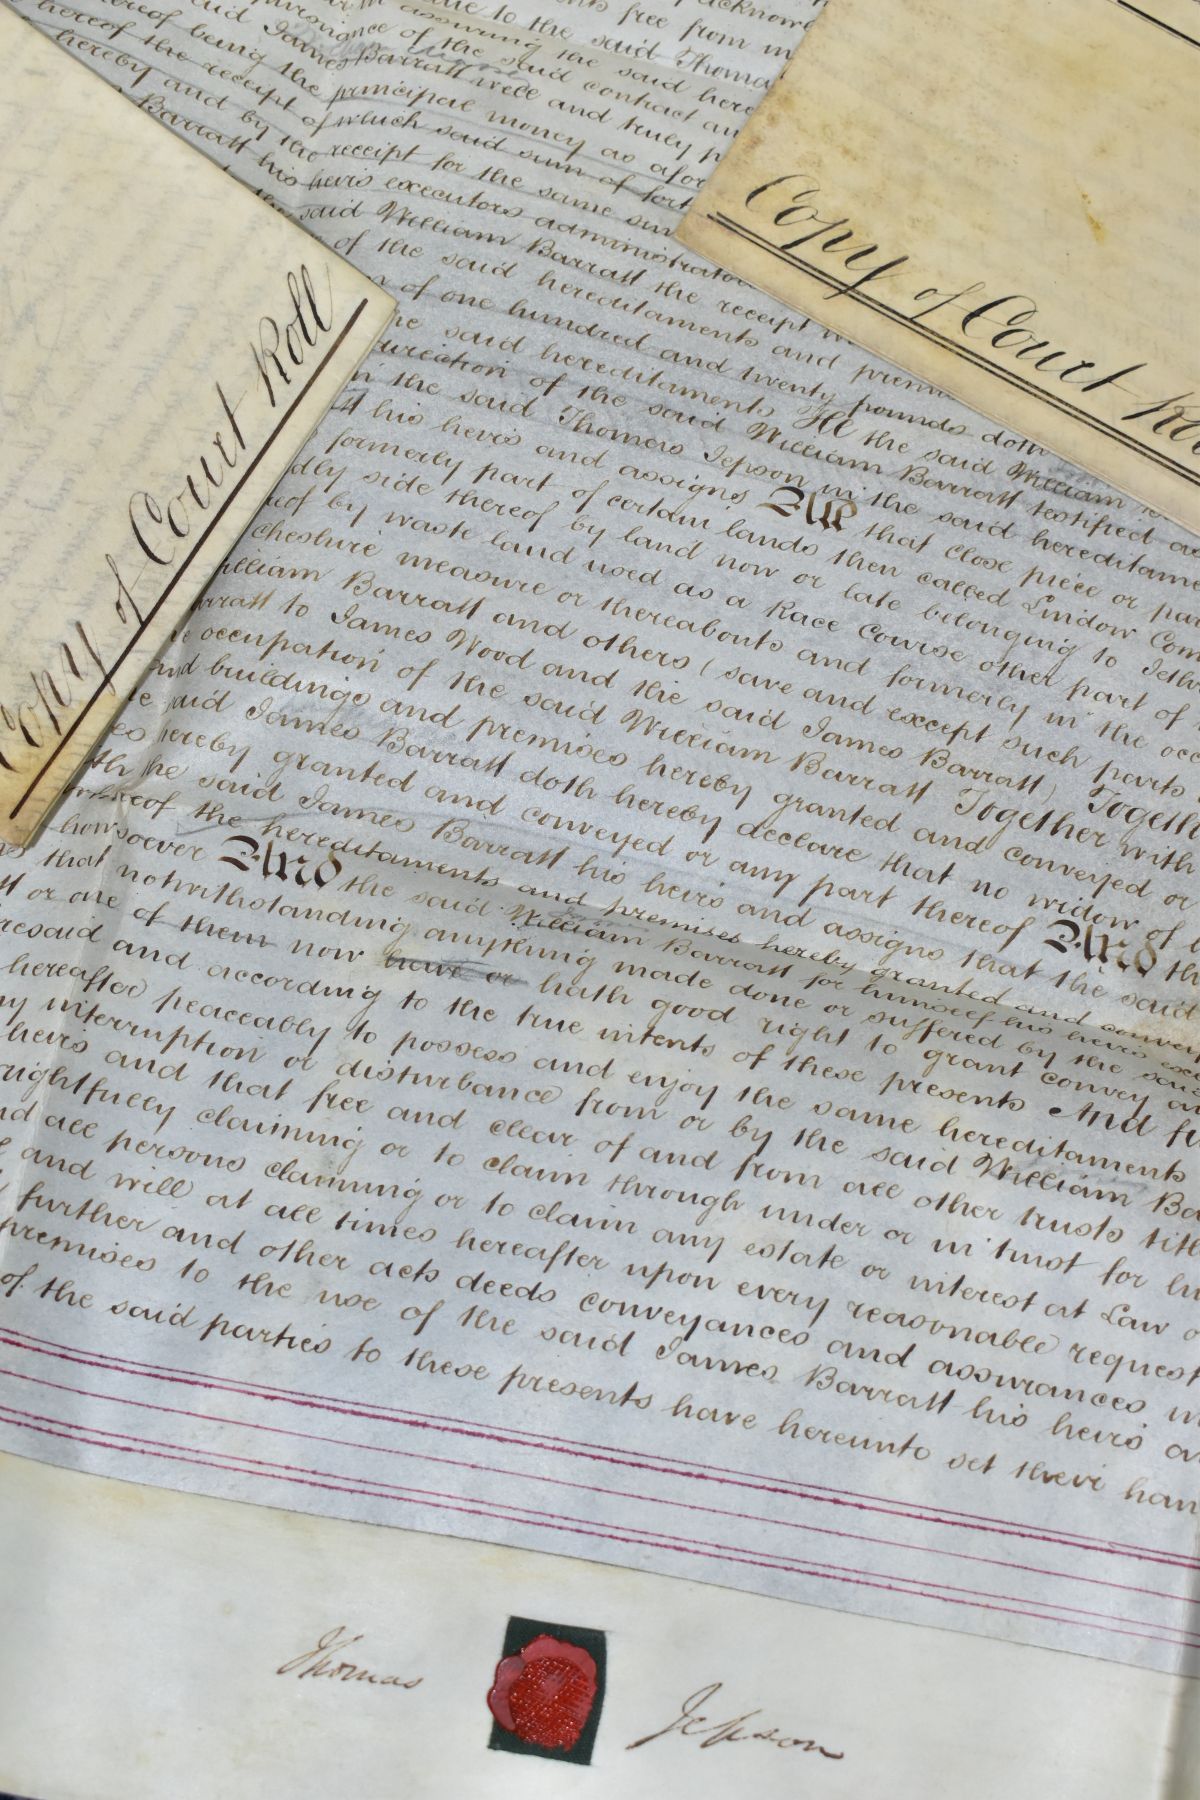 free from
to the said Thomas
assuring the said here
conveyance of the said contract an
said James Barratt well and truly p
hereof being the principal money as afor
hereof the receipt of which said sum of fort
hereby and by the receipt for the same sum
Barratt his heirs executors administrators
said William Barratt the receipt
of the said hereditaments and prem
of one hundred and twenty pounds doth
the said hereditaments He the said William
direction of the said William Barratt testified as
the said Thomas Jepson in the said hereditame
his heirs and assigns All that close piece or par
formerly part of certain lands then called Lindow Com
side thereof by land now or late belonging to Jeth
by waste land used as a Race Course other part of
cheshire measure or thereabouts and formerly in the occ
William Barratt and others (save and except such parts
Barratt to James Wood and the said James Barratt) Togethe
occupation of the said William Barratt Together with
and buildings and premises hereby granted and conveyed or
said James Barratt doth hereby declare that no widow of
hereby granted and conveyed or any part thereof And th
the said James Barratt his heirs and assigns that the said
of the hereditaments and premises hereby granted and convey
howsoever And the said William Barratt for himself his heirs exec
that notwithstanding anything made done or suffered by the said
or one of them now have or hath good right to grant convey an
resaid and according to the true intents of these presents And fu
hereafter peaceably to possess and enjoy the same hereditaments
interruption or disturbance from or by the said William Ba
heirs and that free and clear of and from all other trusts titl
rightfully claiming or to claim through under or in trust for hi
all persons claiming or to claim any estate or interest at Law o
and will at all times hereafter upon every reasonable request
further and other acts deeds conveyances and assurances in
premises to the use of the said James Barratt his heirs an
of the said parties to these presents have hereunto set their han
Copy of Court Roll
Copy of Court Ro
Thomas Jepson